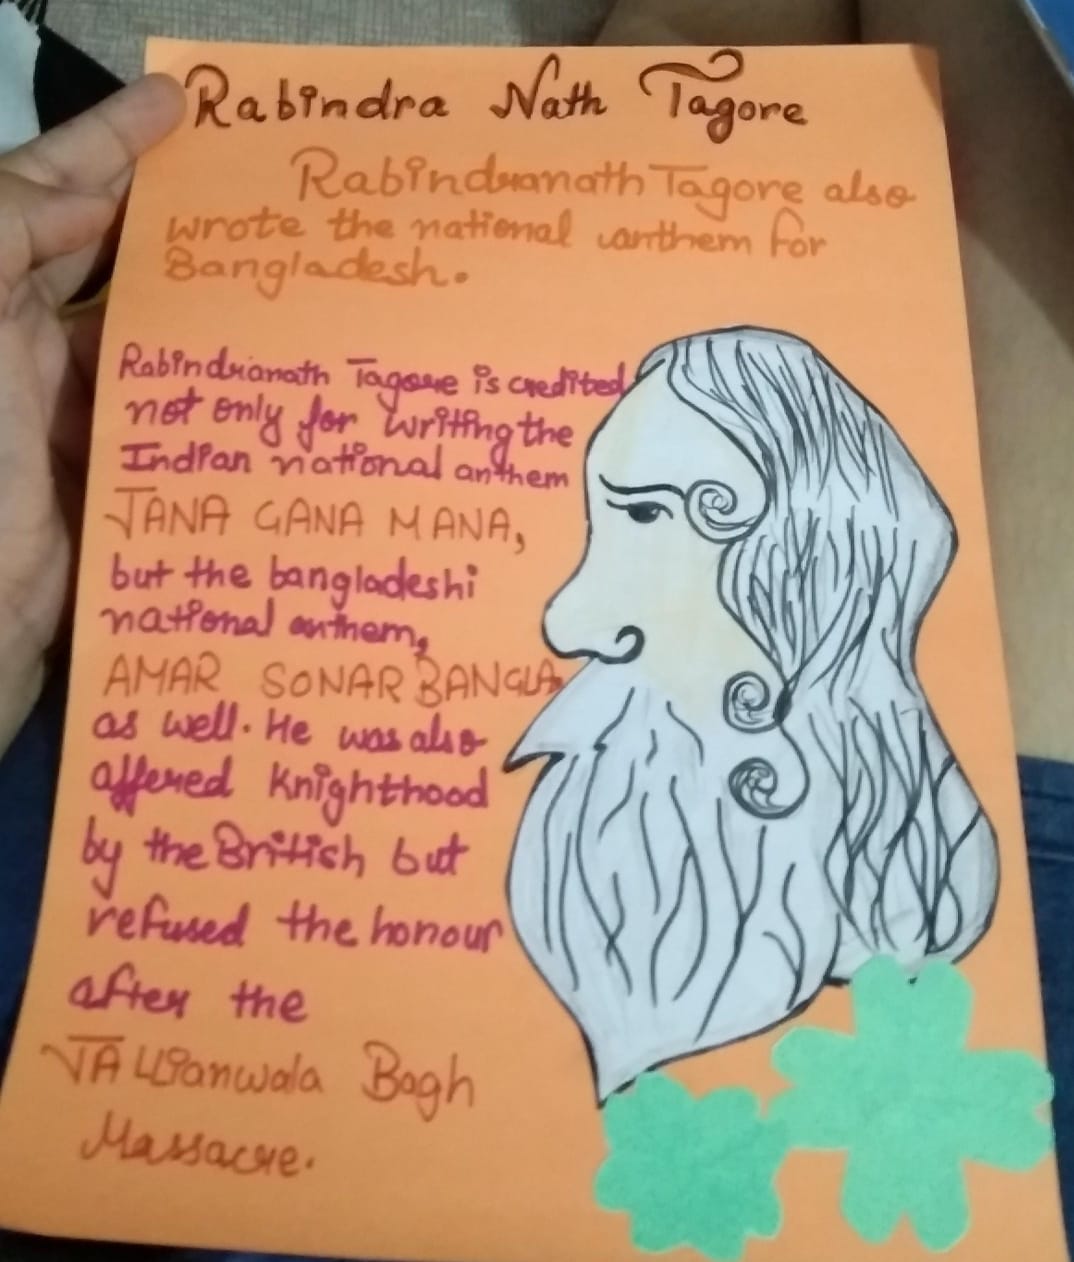 Rabindra Nath Tagore
Rabindranath Tagore also
wrote the national anthem for
Bangladesh.
Rabindranath Tagore is credited
not only for writing the
Indian national anthem
JANA GANA MANA,
but the bangladeshi
national anthem,
AMAR SONAR BANGLA,
as well. He was also
affered Knighthood
by the British but
refused the honour
after the
JAllianwala Bagh
Massacre.